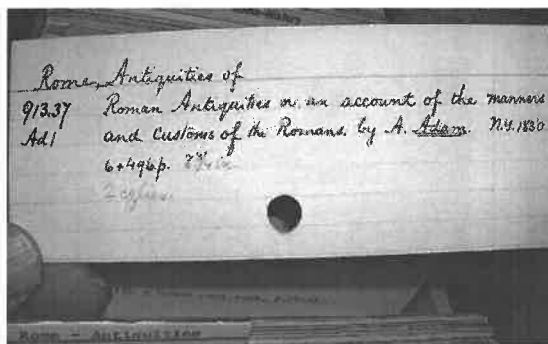 Rome, Antiquities of
913.37 Roman Antiquities or an account of the manners
Ad1 and customs of the Romans. by A. Adam. N.Y. 1830
6+496p.
2 copies.
Rome - Antiquities